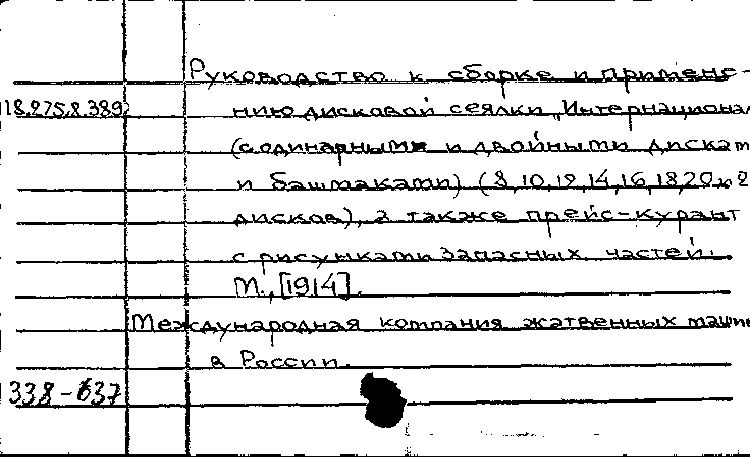 Руководство к сборке и примене-
18.275.8.389 нию дисковой сеялки „Интернационал
(с одинарными и двойными дискам
и башмаками) (8,10,12,14,16,18,20 и 2
дисков), а также прейс-курант
с рисунками запасных частей.
М., [1914].
Международная компания жатвенных маши
в России.
338-637